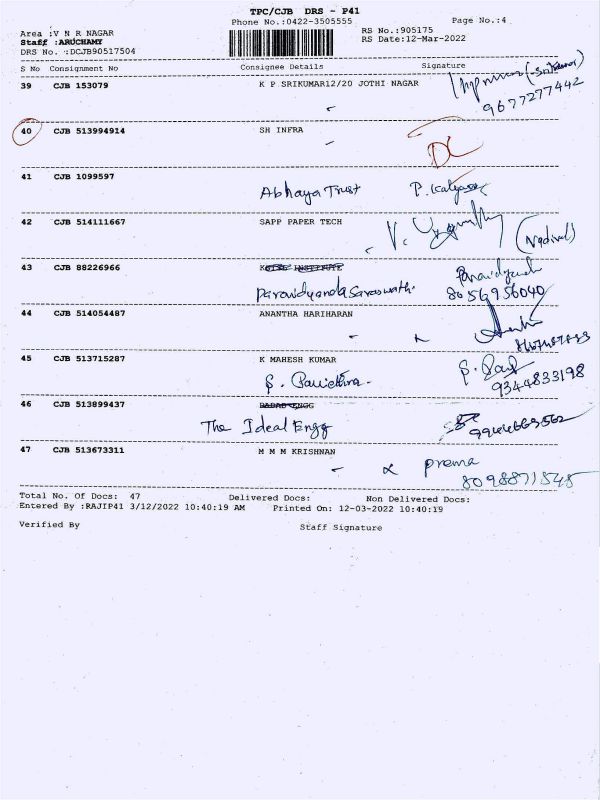 TPC/CJB DRS - P41
Phone No.:0422-3505555
Page No.:4
Area :V N R NAGAR
RS No.:905175
Staff :ARUCHAMY
RS Date:12-Mar-2022
DRS No. :DCJB90517504
S No Consignment No Consignee Details Signature
39 CJB 153079 K P SRIKUMAR12/20 JOTHI NAGAR
9677277442
40 CJB 513994914 SH INFRA
DC
41 CJB 1099597
Abhaya Trust P. Kalyani
42 CJB 514111667 SAPP PAPER TECH
43 CJB 88226966
8056956040
44 CJB 514054487 ANANTHA HARIHARAN
45 CJB 513715287 K MAHESH KUMAR
S. Pavithra.
9344833198
46 CJB 513899437 BADAS ENGG
The Ideal Engg
9944663562
47 CJB 513673311 M M M KRISHNAN
prema
8098871545
Total No. Of Docs: 47 Delivered Docs: Non Delivered Docs:
Entered By :RAJIP41 3/12/2022 10:40:19 AM Printed On: 12-03-2022 10:40:19
Verified By Staff Signature